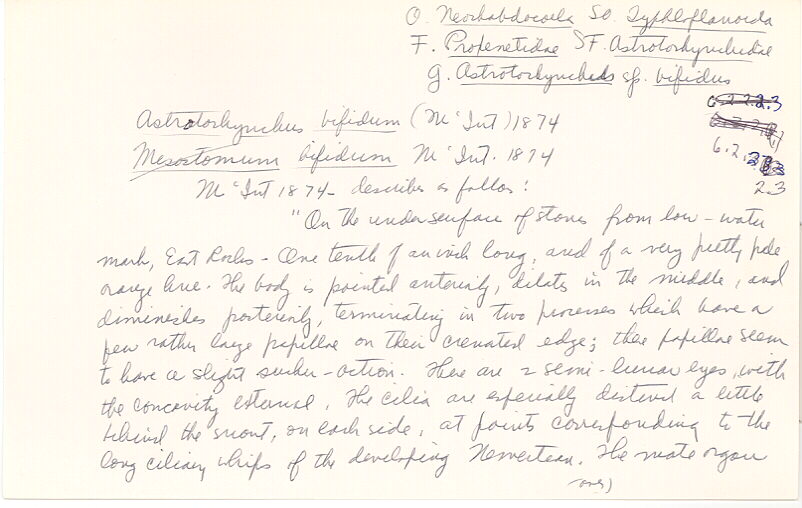 O. Neorhabdocoela SO. Typhloplanoida
F. Proxenetidae SF. Astrotorhynchidae
g. Astrotorhynchus sp. bifidus
6.2.2.2.3
6.2.
2.3
Astrotorhynchus bifidum (M'Int) 1874
Mesostomum bifidum M'Int. 1874
M'Int 1874 - describes as follows:
"On the under surface of stones from low-water
mark, East Rocks - One tenth of an inch long, and of a very pretty pale
orange hue. The body is pointed anteriorly, dilates in the middle, and
diminishes posteriorly, terminating in two processes which have a
few rather large papillae on their crenated edge; these papillae seem
to have a slight sucker-action. There are 2 semi-lunar eyes, with
the concavity external. The cilia are especially distinct a little
behind the snout, on each side, at points corresponding to the
long ciliary whips of the developing Nemertean. The male organ
(over)